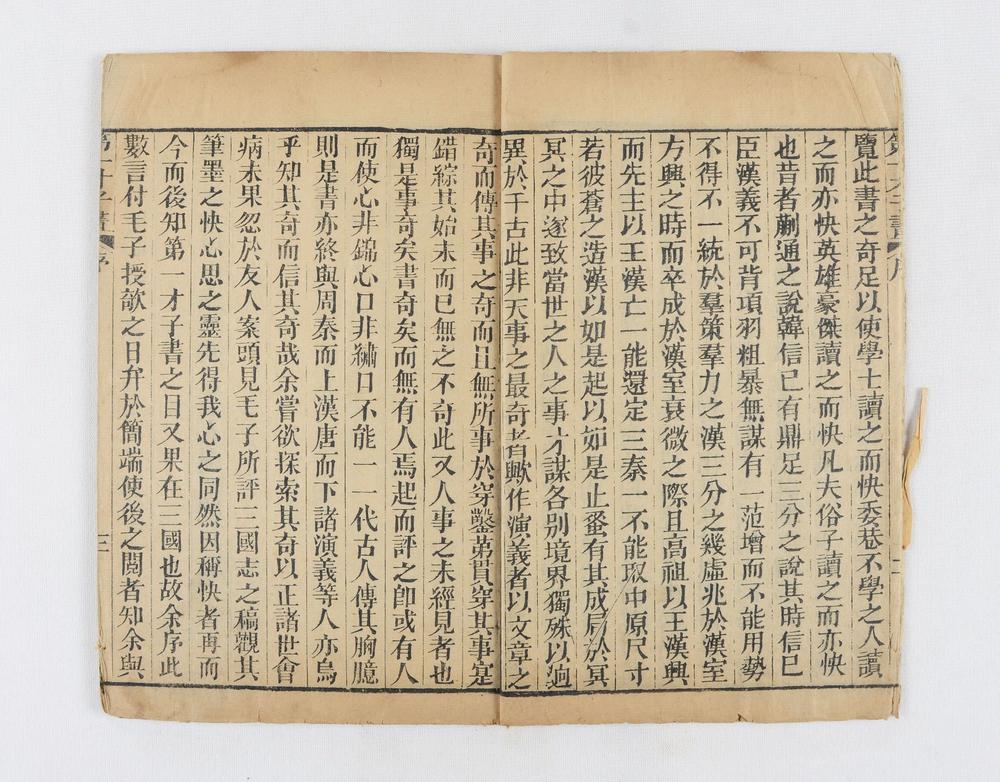 覽此書之奇足以使學士讀之而快委巷不學之人讀
之而亦快英雄豪傑讀之而快凡夫俗子讀之而亦快
也昔者蒯通之說韓信已有鼎足三分之說其時信已
臣漢義不可背項羽粗暴無謀有一范增而不能用勢
不得不一統於羣策羣力之漢三分之幾虛兆於漢室
方興之時而卒成於漢室衰微之際且高祖以王漢興
而先主以王漢亡一能還定三秦一不能取中原尺寸
若彼蒼之造漢以如是起以如是止蚤有其成局於冥
冥之中遂致當世之人之事才謀各別境界獨殊以迥
異於千古此非天事之最奇者歟作演義者以文章之
奇而傳其事之奇而且無所事於穿鑿第貫穿其事寔
錯綜其始末而已無之不奇此又人事之未經見者也
獨是事奇矣書奇矣而無有人焉起而評之卽或有人
而使心非錦心口非繡口不能一一代古人傳其胸臆
則是書亦終與周秦而上漢唐而下諸演義等人亦烏
乎知其奇而信其奇哉余嘗欲探索其奇以正諸世會
病未果忽於友人案頭見毛子所評三國志之稿觀其
筆墨之快心思之靈先得我心之同然因稱快者再而
今而後知第一才子書之目又果在三國也故余序此
數言付毛子授歆之日弁於簡端使後之閱者知余與
第一才子書 序 三